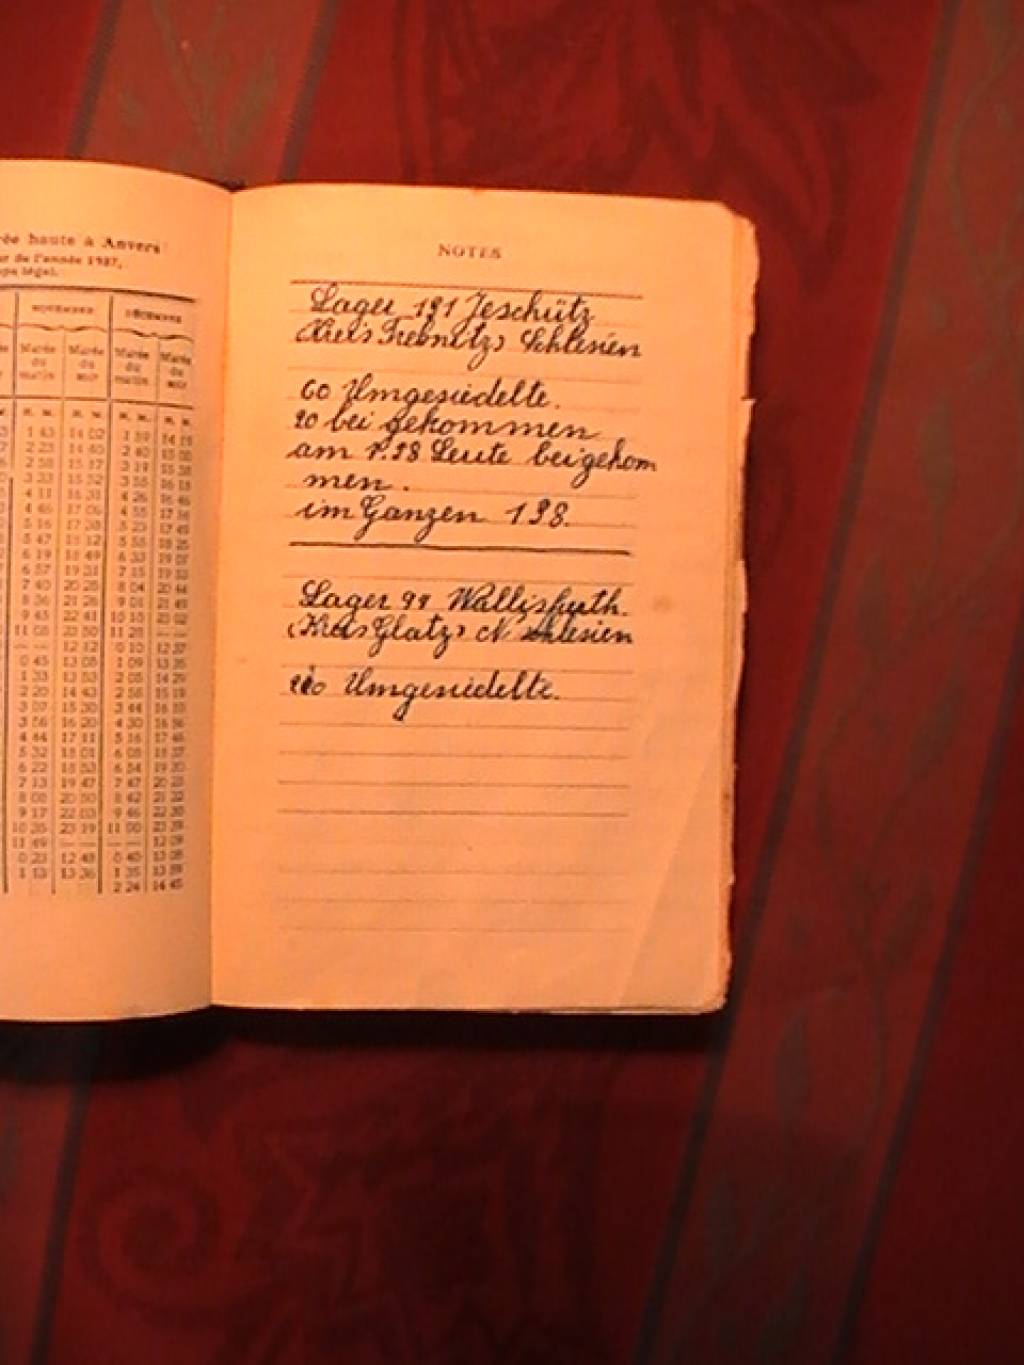 rée haute à Anvers
ur de l'année 1937,
mps légal.
NOVEMBRE DÉCEMBRE
Marée du matin Marée du soir Marée du matin Marée du soir
H. M. H. M. H. M. H. M.
1 43 14 02 1 59 14 19
2 23 14 40 2 40 15 00
2 58 15 17 3 19 15 38
3 33 15 52 3 58 16 18
4 11 16 31 4 26 16 46
4 46 17 06 4 55 17 56
5 16 17 38 5 23 17 49
5 47 18 12 5 58 18 25
6 19 18 49 6 33 19 07
6 57 19 31 7 15 19 53
7 40 20 28 8 04 20 44
8 36 21 26 9 01 21 49
9 45 22 41 10 15 23 02
11 08 23 50 11 28 — —
— — 12 12 0 10 12 37
0 45 13 08 1 09 13 35
1 33 13 53 2 05 14 29
2 20 14 43 2 58 15 19
3 07 15 30 3 44 16 10
3 56 16 20 4 30 16 56
4 44 17 11 5 16 17 46
5 32 18 01 6 05 18 37
6 22 18 53 6 54 19 20
7 13 19 47 7 47 20 23
8 08 20 50 8 42 21 32
9 17 22 03 9 46 22 30
10 35 23 19 11 00 23 39
11 49 — — — — 12 09
0 23 12 48 0 40 13 08
1 13 13 36 1 35 13 59
2 24 14 45
NOTES
Lager 191 Jeschütz
(Kreis Trebnitz) Schlesien
60 Umgesiedelte.
20 bei gekommen
am Leute beigekom
men.
im Ganzen 138.
Lager 99 Wallisfurth.
(Kreis Glatz) N Schlesien
Umgesiedelte.